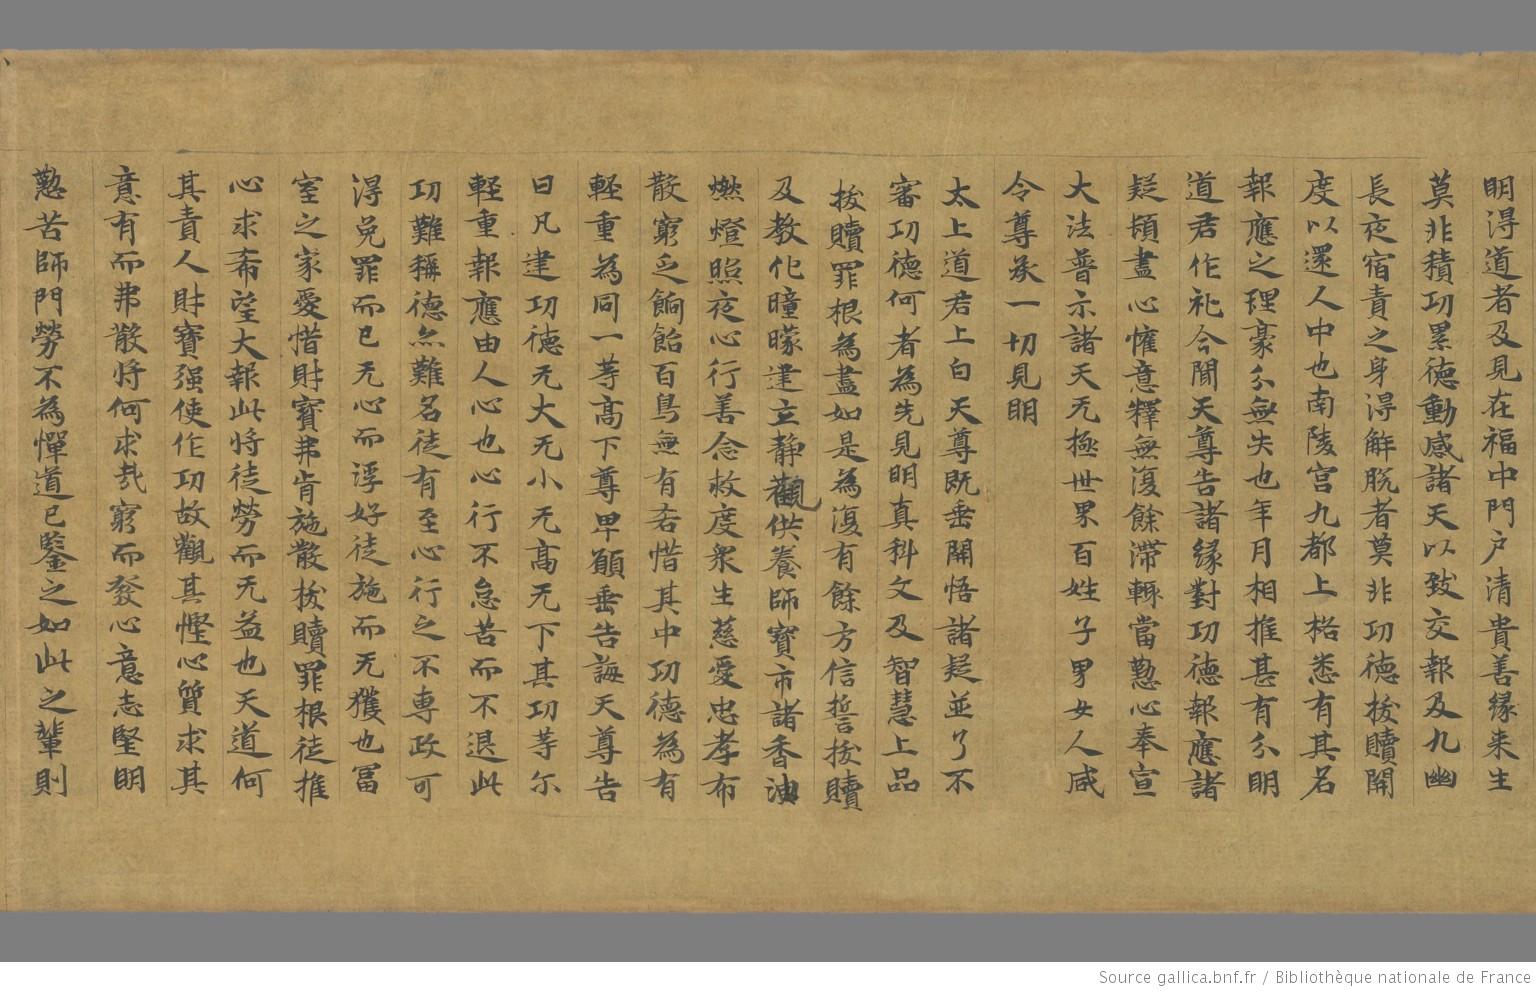 明淂道者及見在福中門户清貴善緣来生
莫非積功累德動感諸天以致交報及九幽
長夜宿責之身淂解脱者莫非功德拔贖開
度以還人中也南陵宫九都上格悉有其名
報應之理豪分無失也年月相推甚有分明
道君作礼今聞天尊告諸緣對功德報應諸
疑頓盡心懽意釋無復餘滯輙當懃心奉宣
大法普示諸天无極世界百姓子男女人咸
令尊承一切見明
太上道君上白天尊既垂開悟諸疑並了不
審功德何者為先見明真科文及智慧上品
拔贖罪根為盡如是為復有餘方信誓拔贖
及教化曈曚建立静觀供養師寳市諸香油
燃燈照夜心行善念救度衆生慈愛忠孝布
散窮乏餉飴百鳥無有吝惜其中功德為有
軽重為同一等髙下尊卑願垂告誨天尊告
曰凡建功德无大无小无髙无下其功等尓
軽重報應由人心也心行不怠苦而不退此
功難稱德亦難名徒有至心行之不専政可
淂免罪而已无心而浮好徒施而无獲也冨
室之家愛惜財寳弗肯施散拔贖罪根徒推
心求希望大報此将徒勞而无益也天道何
其責人財寳强使作功故觀其慳心質求其
意有而弗散将何求㢤窮而發心意志堅明
懃苦師門勞不為憚道已鑒之如此之輩則
Source gallica.bnf.fr / Bibliothèque nationale de France